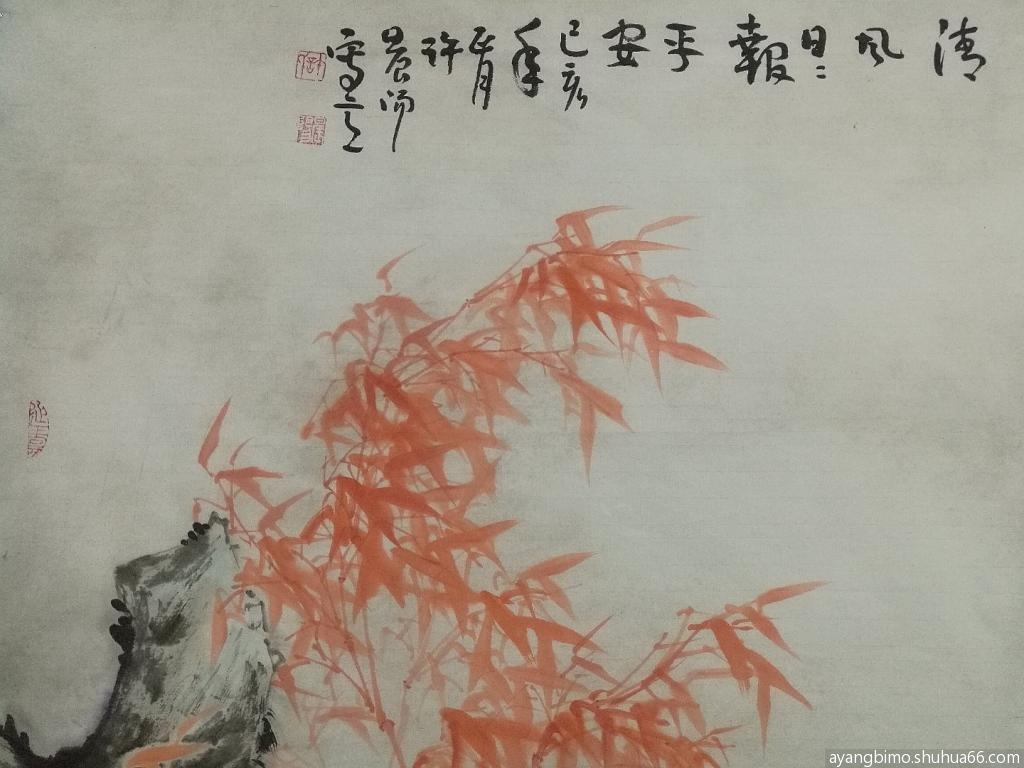 清
风
日〻
報
平
安
己亥
年
正月
許
晨
写之
ayangbimo.shuhua66.com